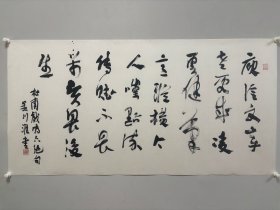 庾信文章
老更成凌
雲健筆
意縱橫今
人嗤點流
傳賦不覺
前賢畏後
生
杜甫戲為六絕句